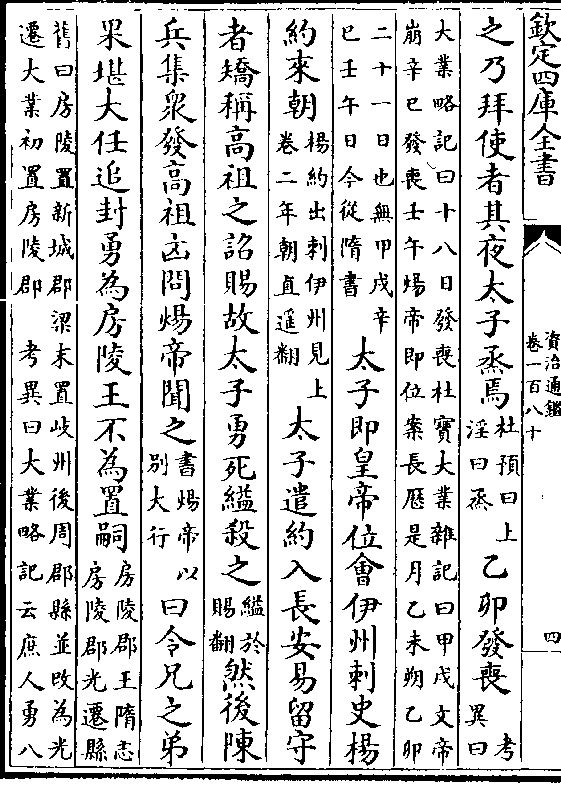 欽定四庫全書
資治通鑑
卷一百八十
四
之乃拜使者其夜太子烝焉杜預曰上淫曰烝乙卯發喪考異曰
大業略記曰十八日發喪杜寶大業雜記曰甲戌文帝
崩辛巳發喪壬午煬帝即位案長歷是月乙未朔乙卯
二十一日也無甲戌辛巳壬午日今從隋書太子即皇帝位會伊州刺史楊
約來朝楊約出刺伊州見上卷二年朝直遥翻太子遣約入長安易留守
者矯稱高祖之詔賜故太子勇死縊殺之縊於賜翻然後陳
兵集衆發高祖凶問煬帝聞之書煬帝以別大行曰令兄之弟
果堪大任追封勇為房陵王不為置嗣房陵郡王隋志房陵郡光遷縣
舊曰房陵置新城郡梁末置岐州後周郡縣並改為光
遷大業初置房陵郡 考異曰大業略記云庶人勇八